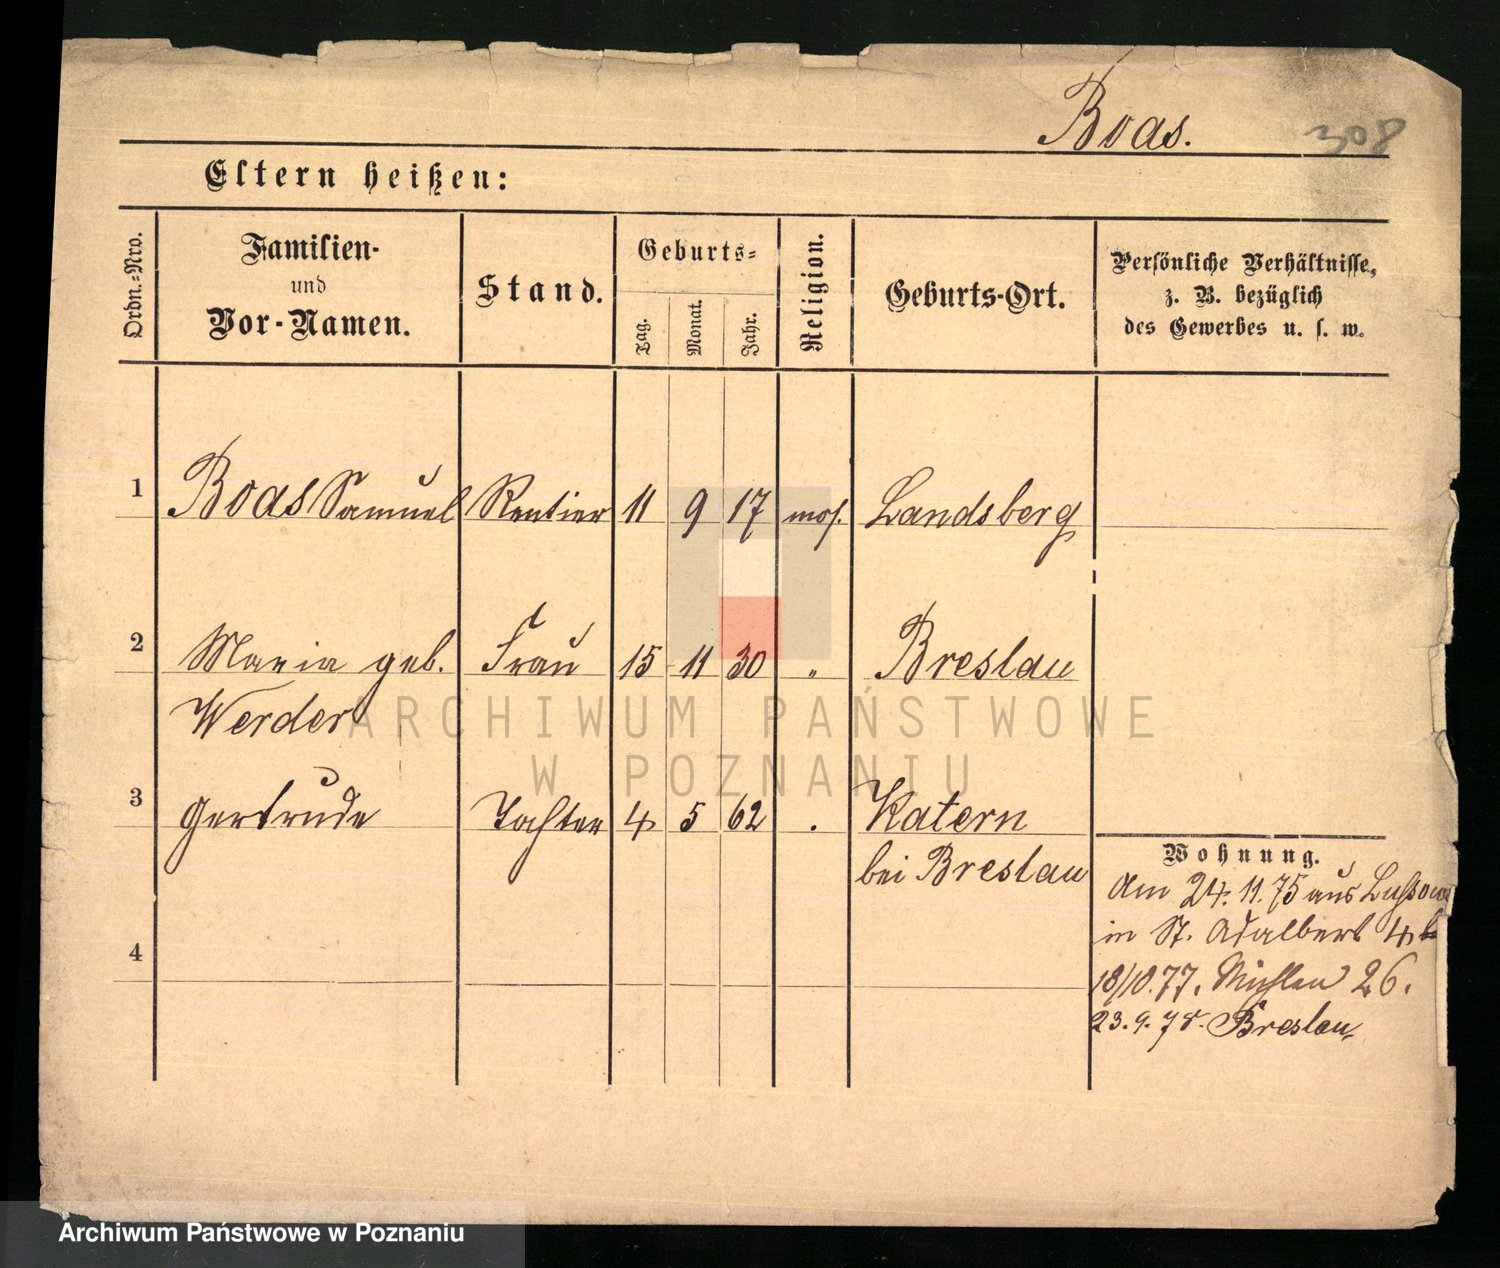 Boas.
308
Eltern heißen:
Ordn.-Nro.
Familien-
und
Vor-Namen.
Stand.
Geburts-
Tag.
Monat.
Jahr.
Religion.
Geburts-Ort.
Persönliche Verhältnisse,
z. B. bezüglich
des Gewerbes u. s. w.
1 Boas Samuel Rentier 11 9 17 mos. Landsberg
2 Maria geb. Frau 15 11 30 „ Breslau
Werder
3 Gertrude Tochter 4 5 62 . Kattern
bei Breslau
4
Wohnung.
Am 24.11.75 aus
in St. Adalbert 4
18/10.77. Mühlen 26.
23.9.78. Breslau
ARCHIWUM PAŃSTWOWE
W POZNANIU
Archiwum Państwowe w Poznaniu